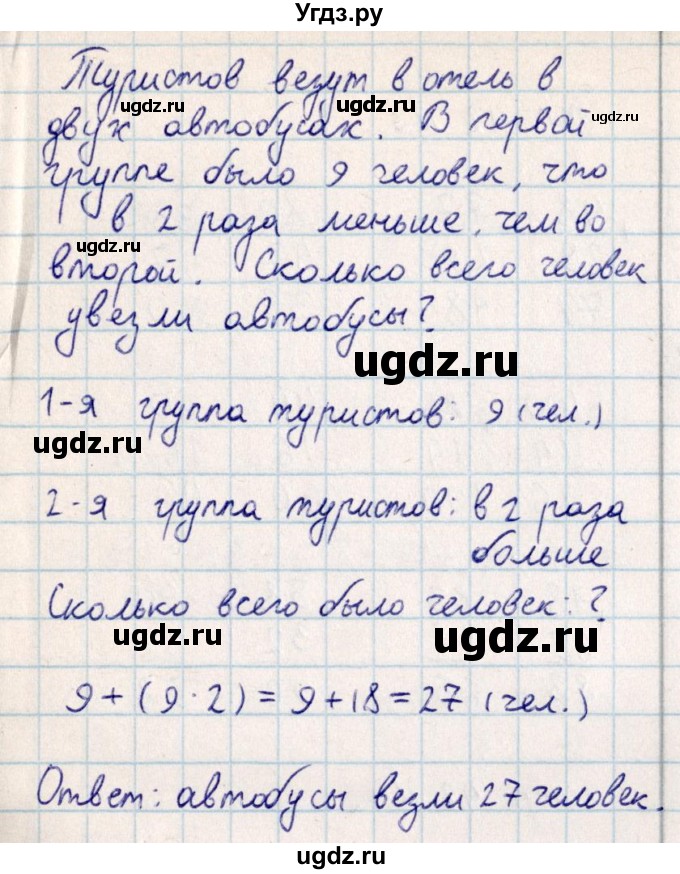 Угдз.ру
Туристов везут в отель в
ugdz.ru ugdz.ru
двух автобусах. В первой
ugdz.ru
группе было 9 человек, что
в 2 раза меньше, чем во
ugdz.ru
второй. Сколько всего человек
увезли автобусы?
ugdz.ru
1-я группа туристов: 9 (чел.)
ugdz.ru
2-я группа туристов: в 2 раза
больше
Сколько всего было человек: ?
ugdz.ru ugdz.ru
9 + (9 · 2) = 9 + 18 = 27 (чел.)
Ответ: автобусы везли 27 человек.
ugdz.ru